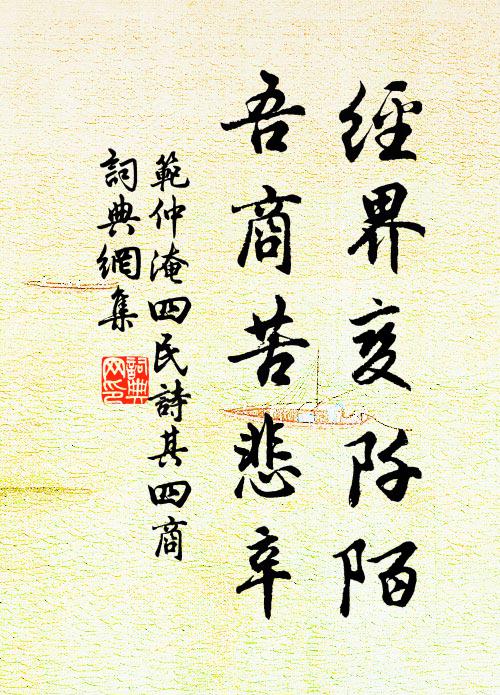 經界變阡陌
吾商苦悲辛
範仲淹四民詩其四商
詞典網集
詞典
网印